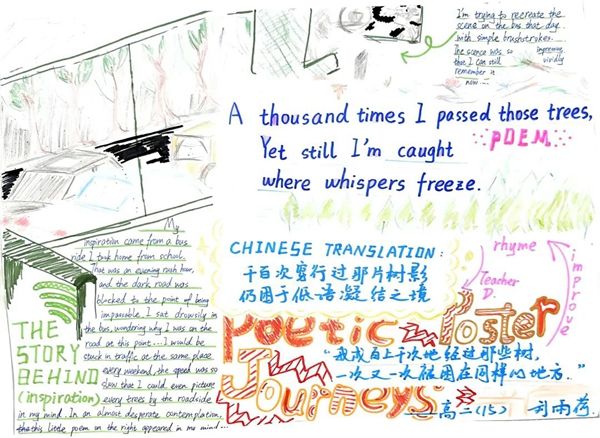 I'm trying to recreate the
scene on the bus that day
with simple brushstrokes.
The scence was so impressive,
that I can still vividly
remember it
now....
A thousand times I passed those trees,
Yet still I'm caught
where whispers freeze.
POEM
CHINESE TRANSLATION:
千百次穿行过那片树影
仍困于低语凝结之境
rhyme
Teacher
D.
improve
My
inspiration came from a bus
ride I took home from school.
That was an evening rush hour,
and the dark road was
blocked to the point of being
impassable. I sat drowsily in
the bus, wondering why I was on the
road at this point...I would be
stuck in traffic at the same place
every weekend, the speed was so
slow that I could even picture
every trees by the roadside
in my mind. In an almost desperate contemplation,
this little poem on the right appeared in my mind...
THE
STORY
BEHIND
(inspiration)
Poetic Poster
Journeys
“我成百上千次地经过那些树,
一次又一次被困在同样的地方..”
——高二(15) 刘雨荷